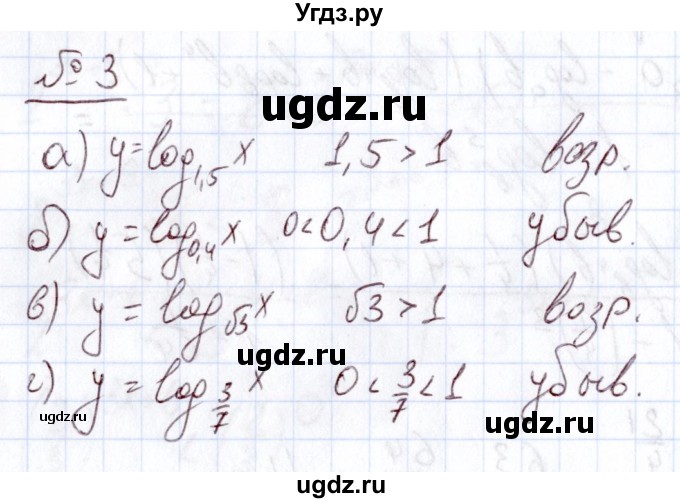 Угдз.ру
№ 3
ugdz.ru
а) y = log_{1,5} x 1,5 > 1 возр.
ugdz.ru
б) y = log_{0,4} x 0 < 0,4 < 1 убыв.
в) y = log_{√3} x √3 > 1 возр.
ugdz.ru
г) y = log_{3/7} x 0 < 3/7 < 1 убыв.
ugdz.ru
ugdz.ru
ugdz.ru